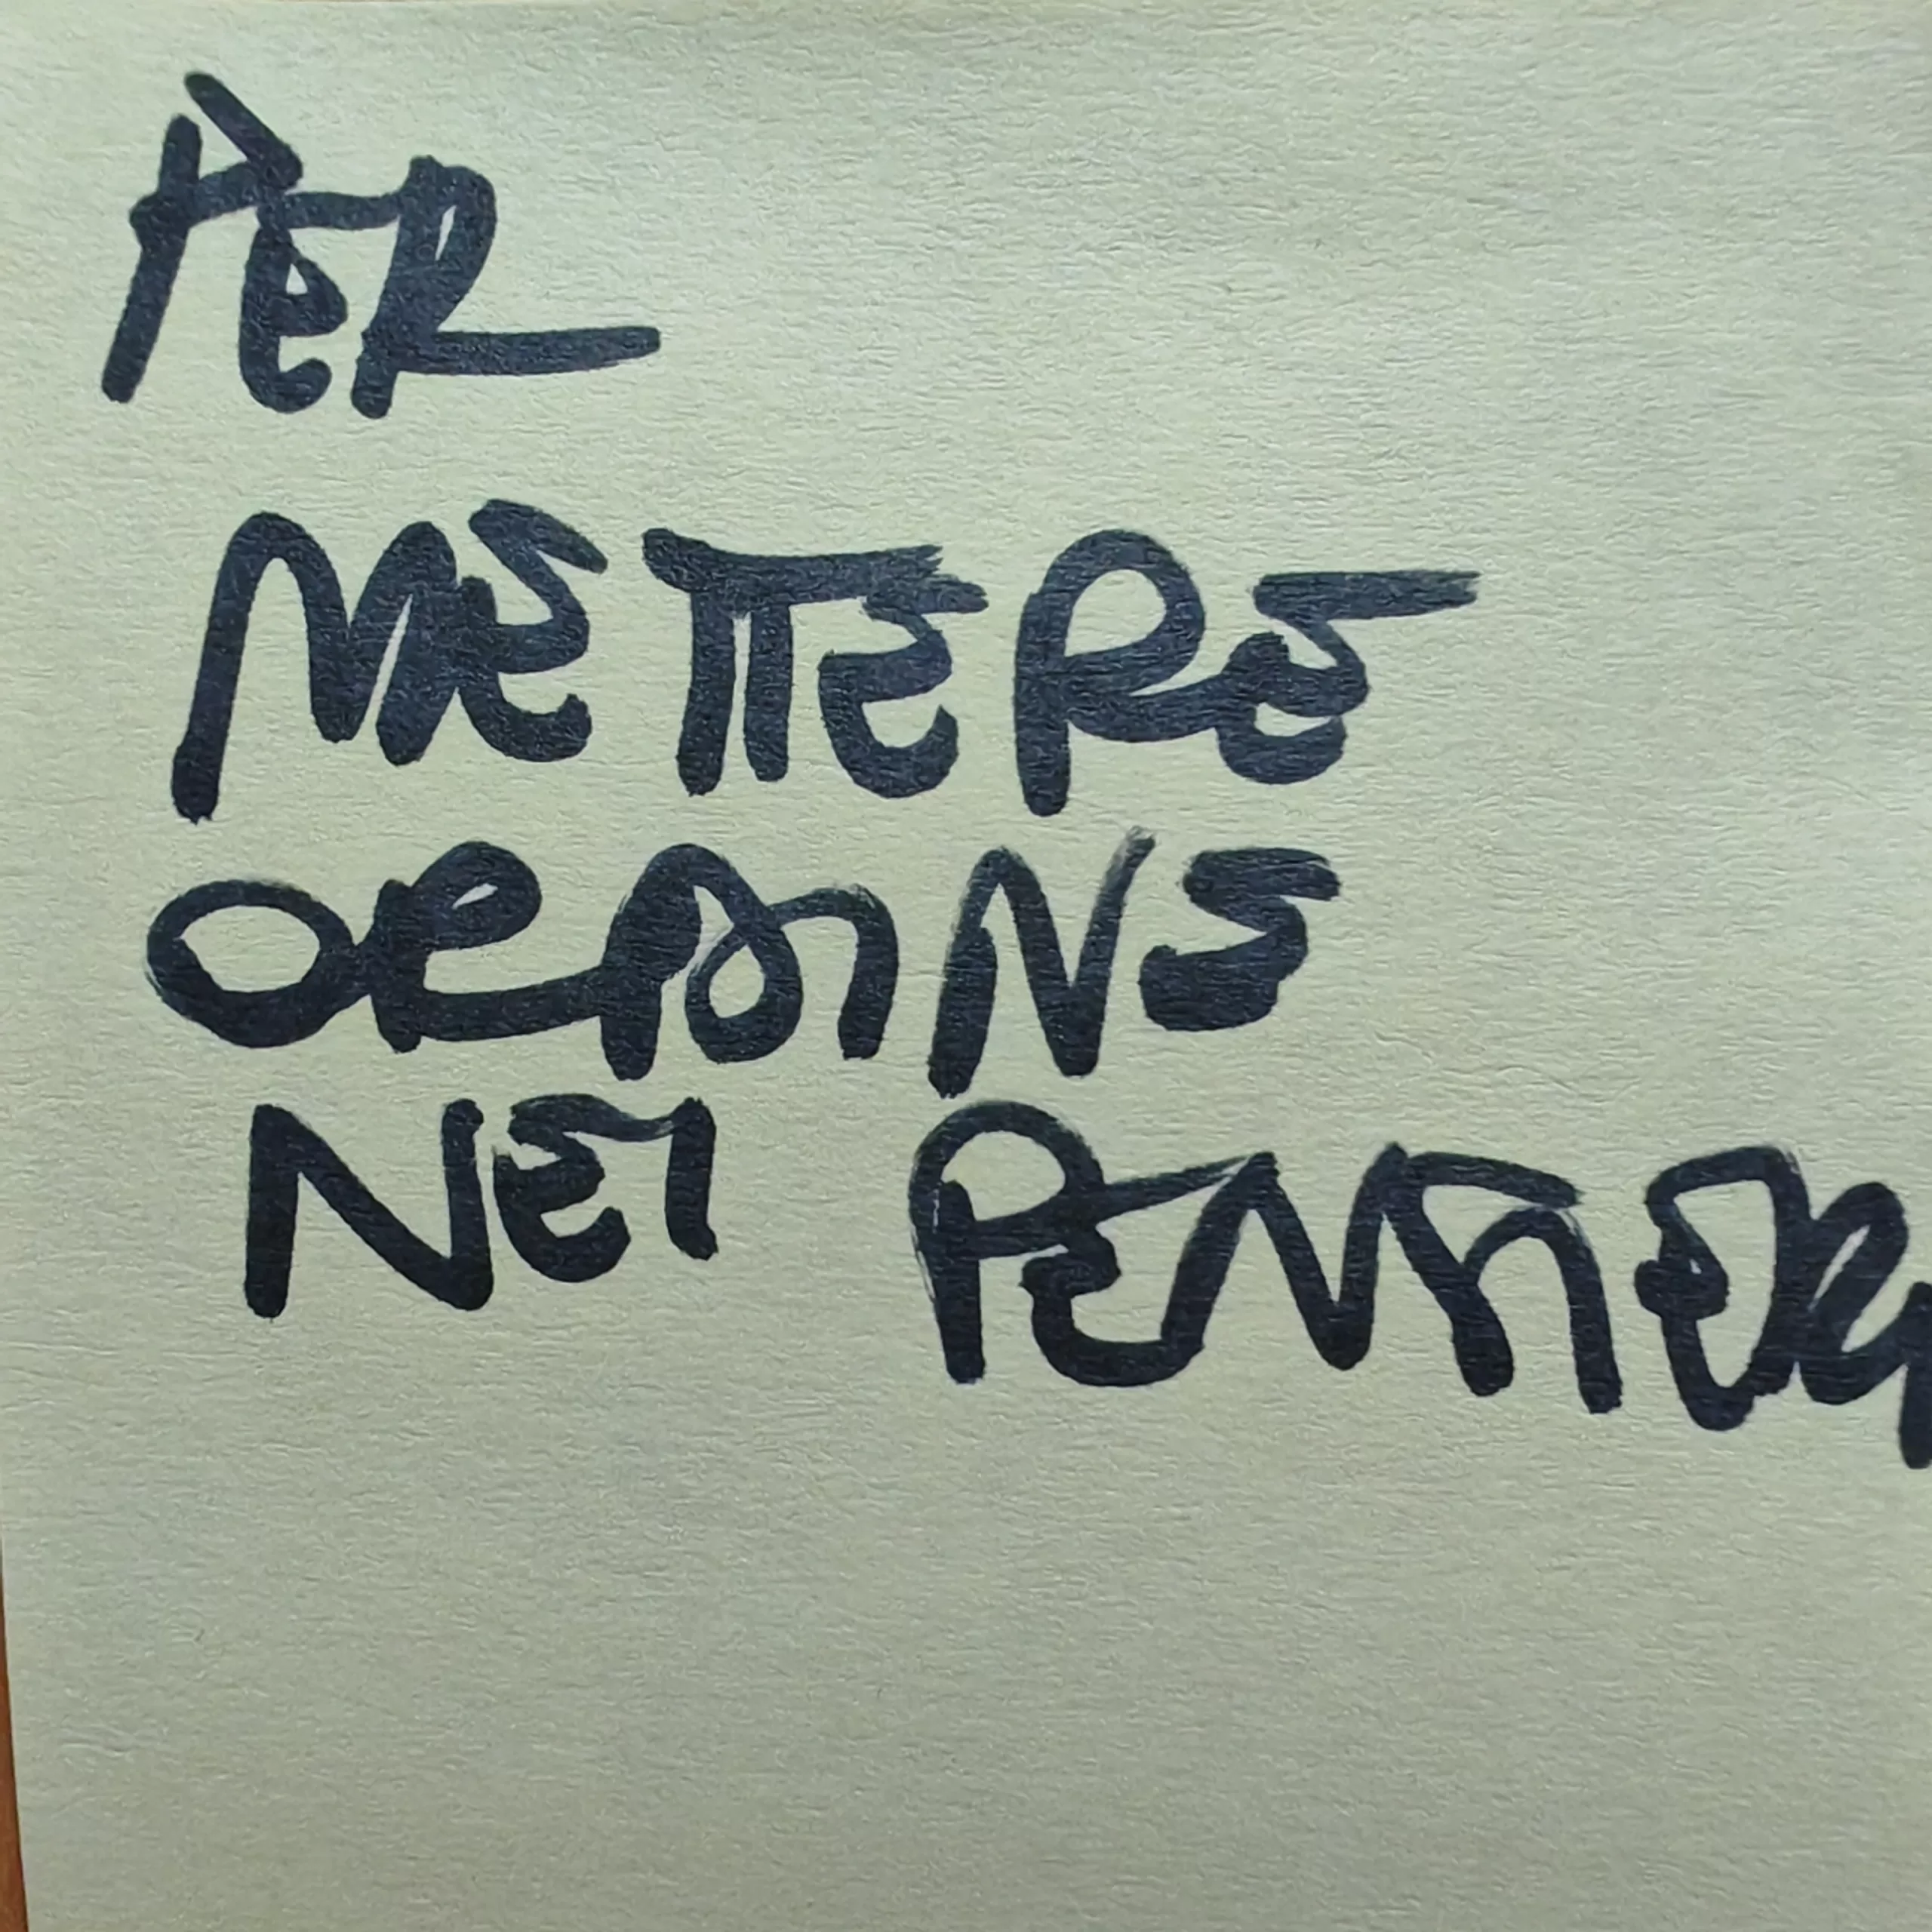 PER
METTERE
ORDINE
NEI PENSIERI